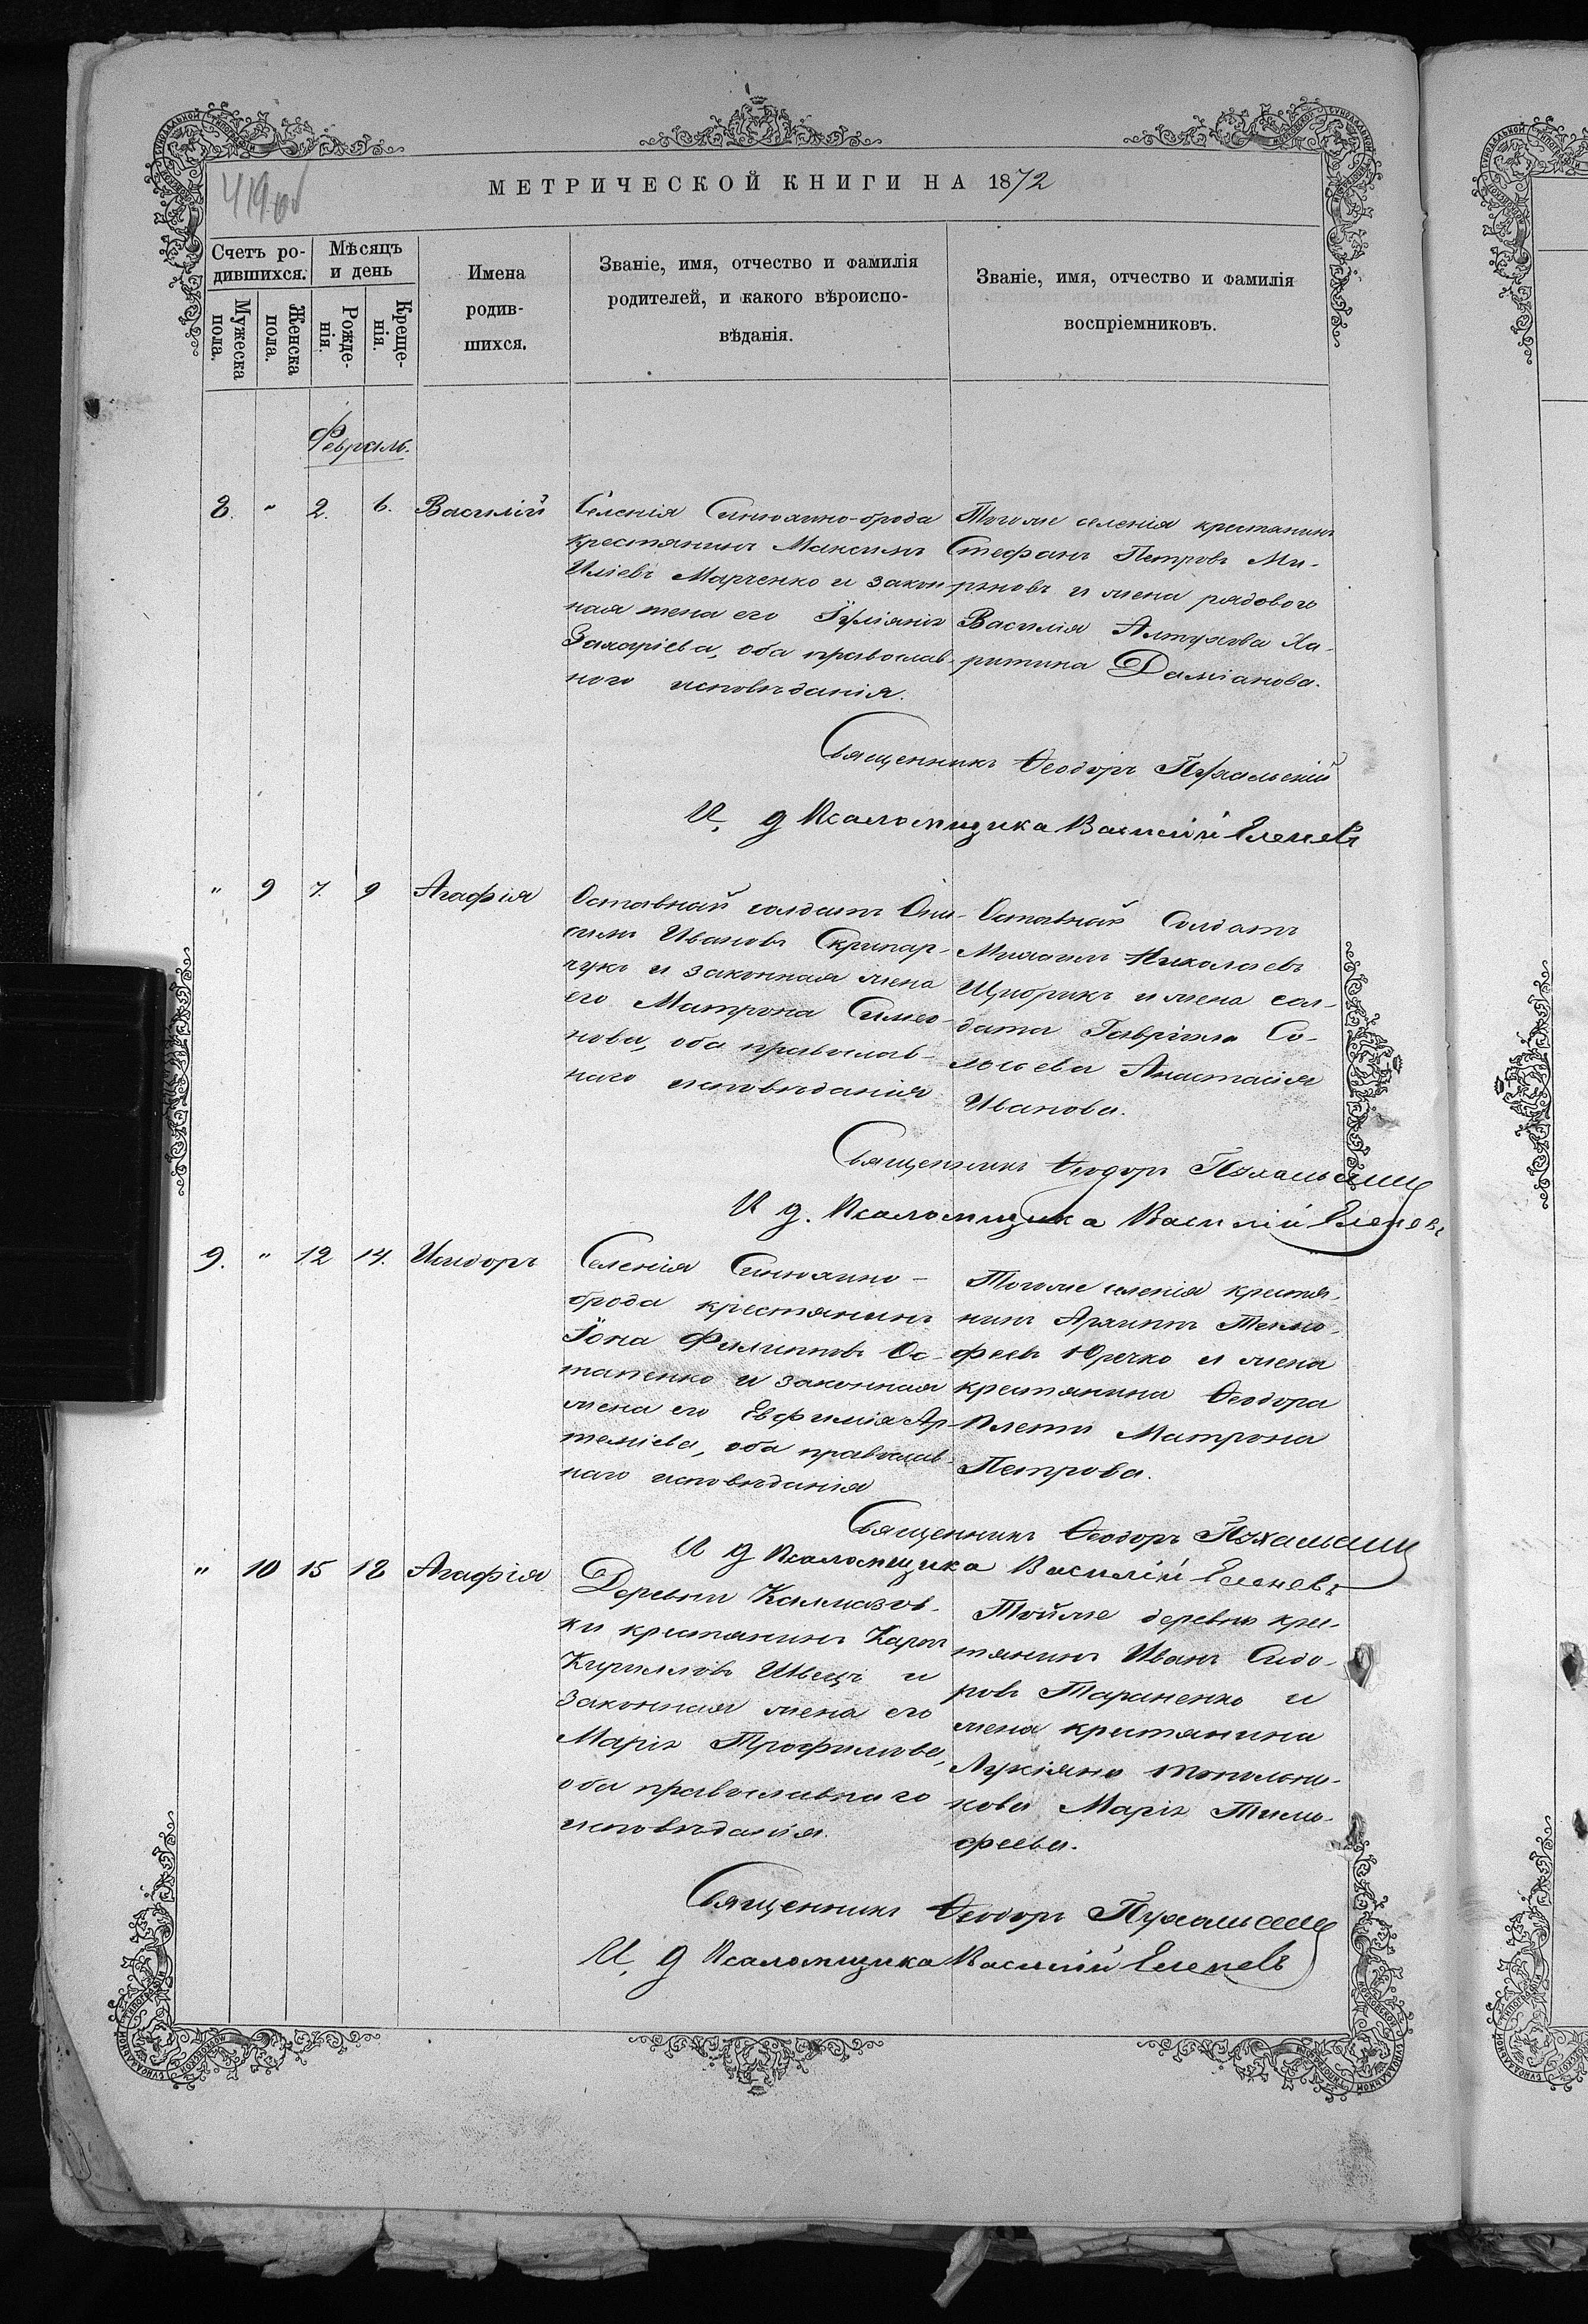 419 об
МЕТРИЧЕСКОЙ КНИГИ НА 1872
Счетъ ро-
дившихся.
Мѣсяцъ
и день
Мужеска
пола.
Женска
пола.
Рожде-
нія.
Креще-
нія.
Имена
родив-
шихся.
Званіе, имя, отчество и фамилія
родителей, и какого вѣроиспо-
вѣданія.
Званіе, имя, отчество и фамилія
воспріемниковъ.
Февраль.
8. " 2. 6. Василій
Селенія Синюхино-брода
крестьянинъ Максимъ
Иліевъ Марченко и закон-
ная жена его Іуліанія
Захаріева, оба православ-
ного исповѣданія.
Тогоже селенія крестьянинъ
Стефанъ Петровъ Ми-
роновъ и жена рядового
Василія Алтухова Ха-
ритина Даміанова.
Священникъ Ѳеодоръ Пухальскій
И. д Псаломщика Василій Еленевъ
" 9 7. 9 Агафія
Отставной солдатъ Они-
симъ Ивановъ Скрипар-
чукъ и законная жена
его Матрона Симео-
нова, оба православ-
наго исповѣданія
Отставной Солдатъ
Михаилъ Николаевъ
Щирикъ и жена сол-
дата Гавріила Со-
ловьева Анастасія
Иванова.
Священникъ Ѳеодоръ Пухальскій
И д. Псаломщика Василій Еленевъ
9. " 12 14. Исидоръ
Селенія Синюхино-
брода крестьянинъ
Іона Филипповъ Ос-
тапенко и законная
жена его Евфимія Ар-
теміева, оба православ-
наго исповѣданія
Тогоже селенія крестья-
нинъ Архипъ Тимо-
феевъ Юрчко и жена
крестьянина Ѳеодора
Плети Матрона
Петрова.
Священникъ Ѳеодоръ Пухальскій
И д Псаломщика Василій Еленевъ
" 10 15 18 Агафія
Деревни Калмазов-
ки крестьянинъ Карпъ
Кирилловъ Швецъ и
законная жена его
Марія Трофимова,
оба православнаго
исповѣданія.
Тойже деревни крес-
тьянинъ Иванъ Сидо-
ровъ Тараненко и
жена крестьянина
Лукіяна
Марія Тимо-
феева.
Священникъ Ѳеодоръ Пухальскій
И. д Псаломщика Василій Еленевъ